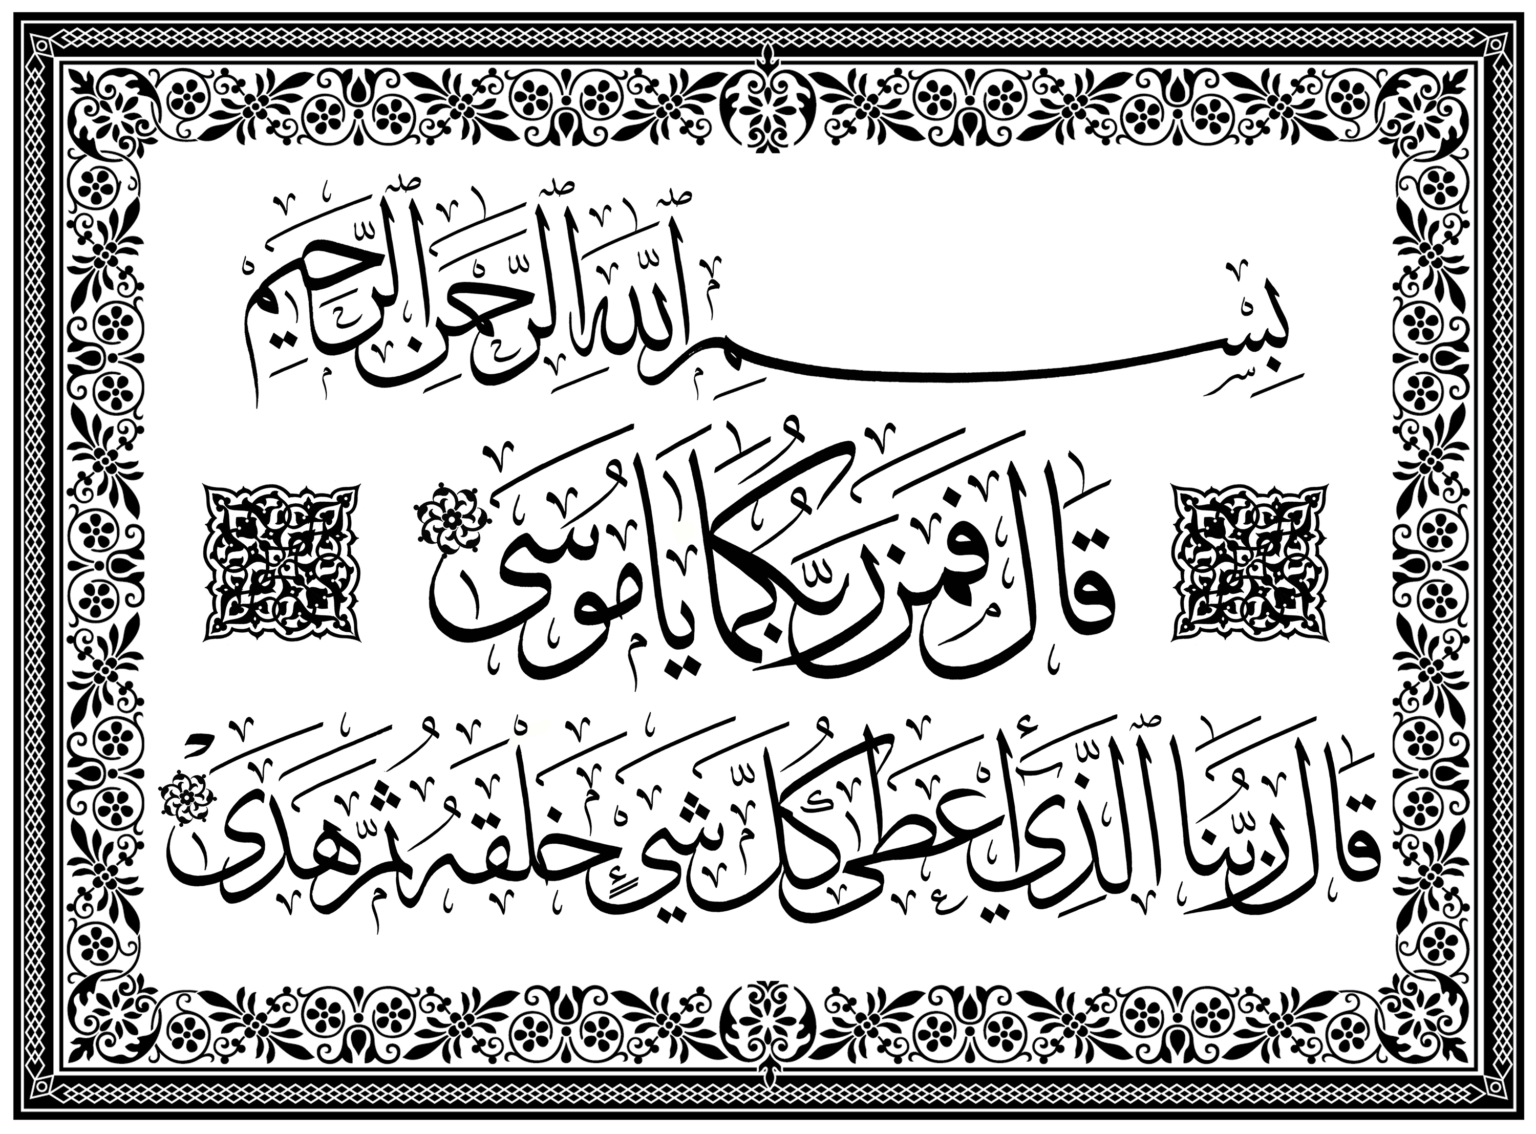 بِسْمِ ٱللَّهِ ٱلرَّحْمَٰنِ ٱلرَّحِيمِ
قَالَ فَمَنْ رَبُّكُمَا يَامُوسَى
قَالَ رَبُّنَا ٱلَّذِي أَعْطَى كُلَّ شَيْءٍ خَلْقَهُ ثُمَّ هَدَى